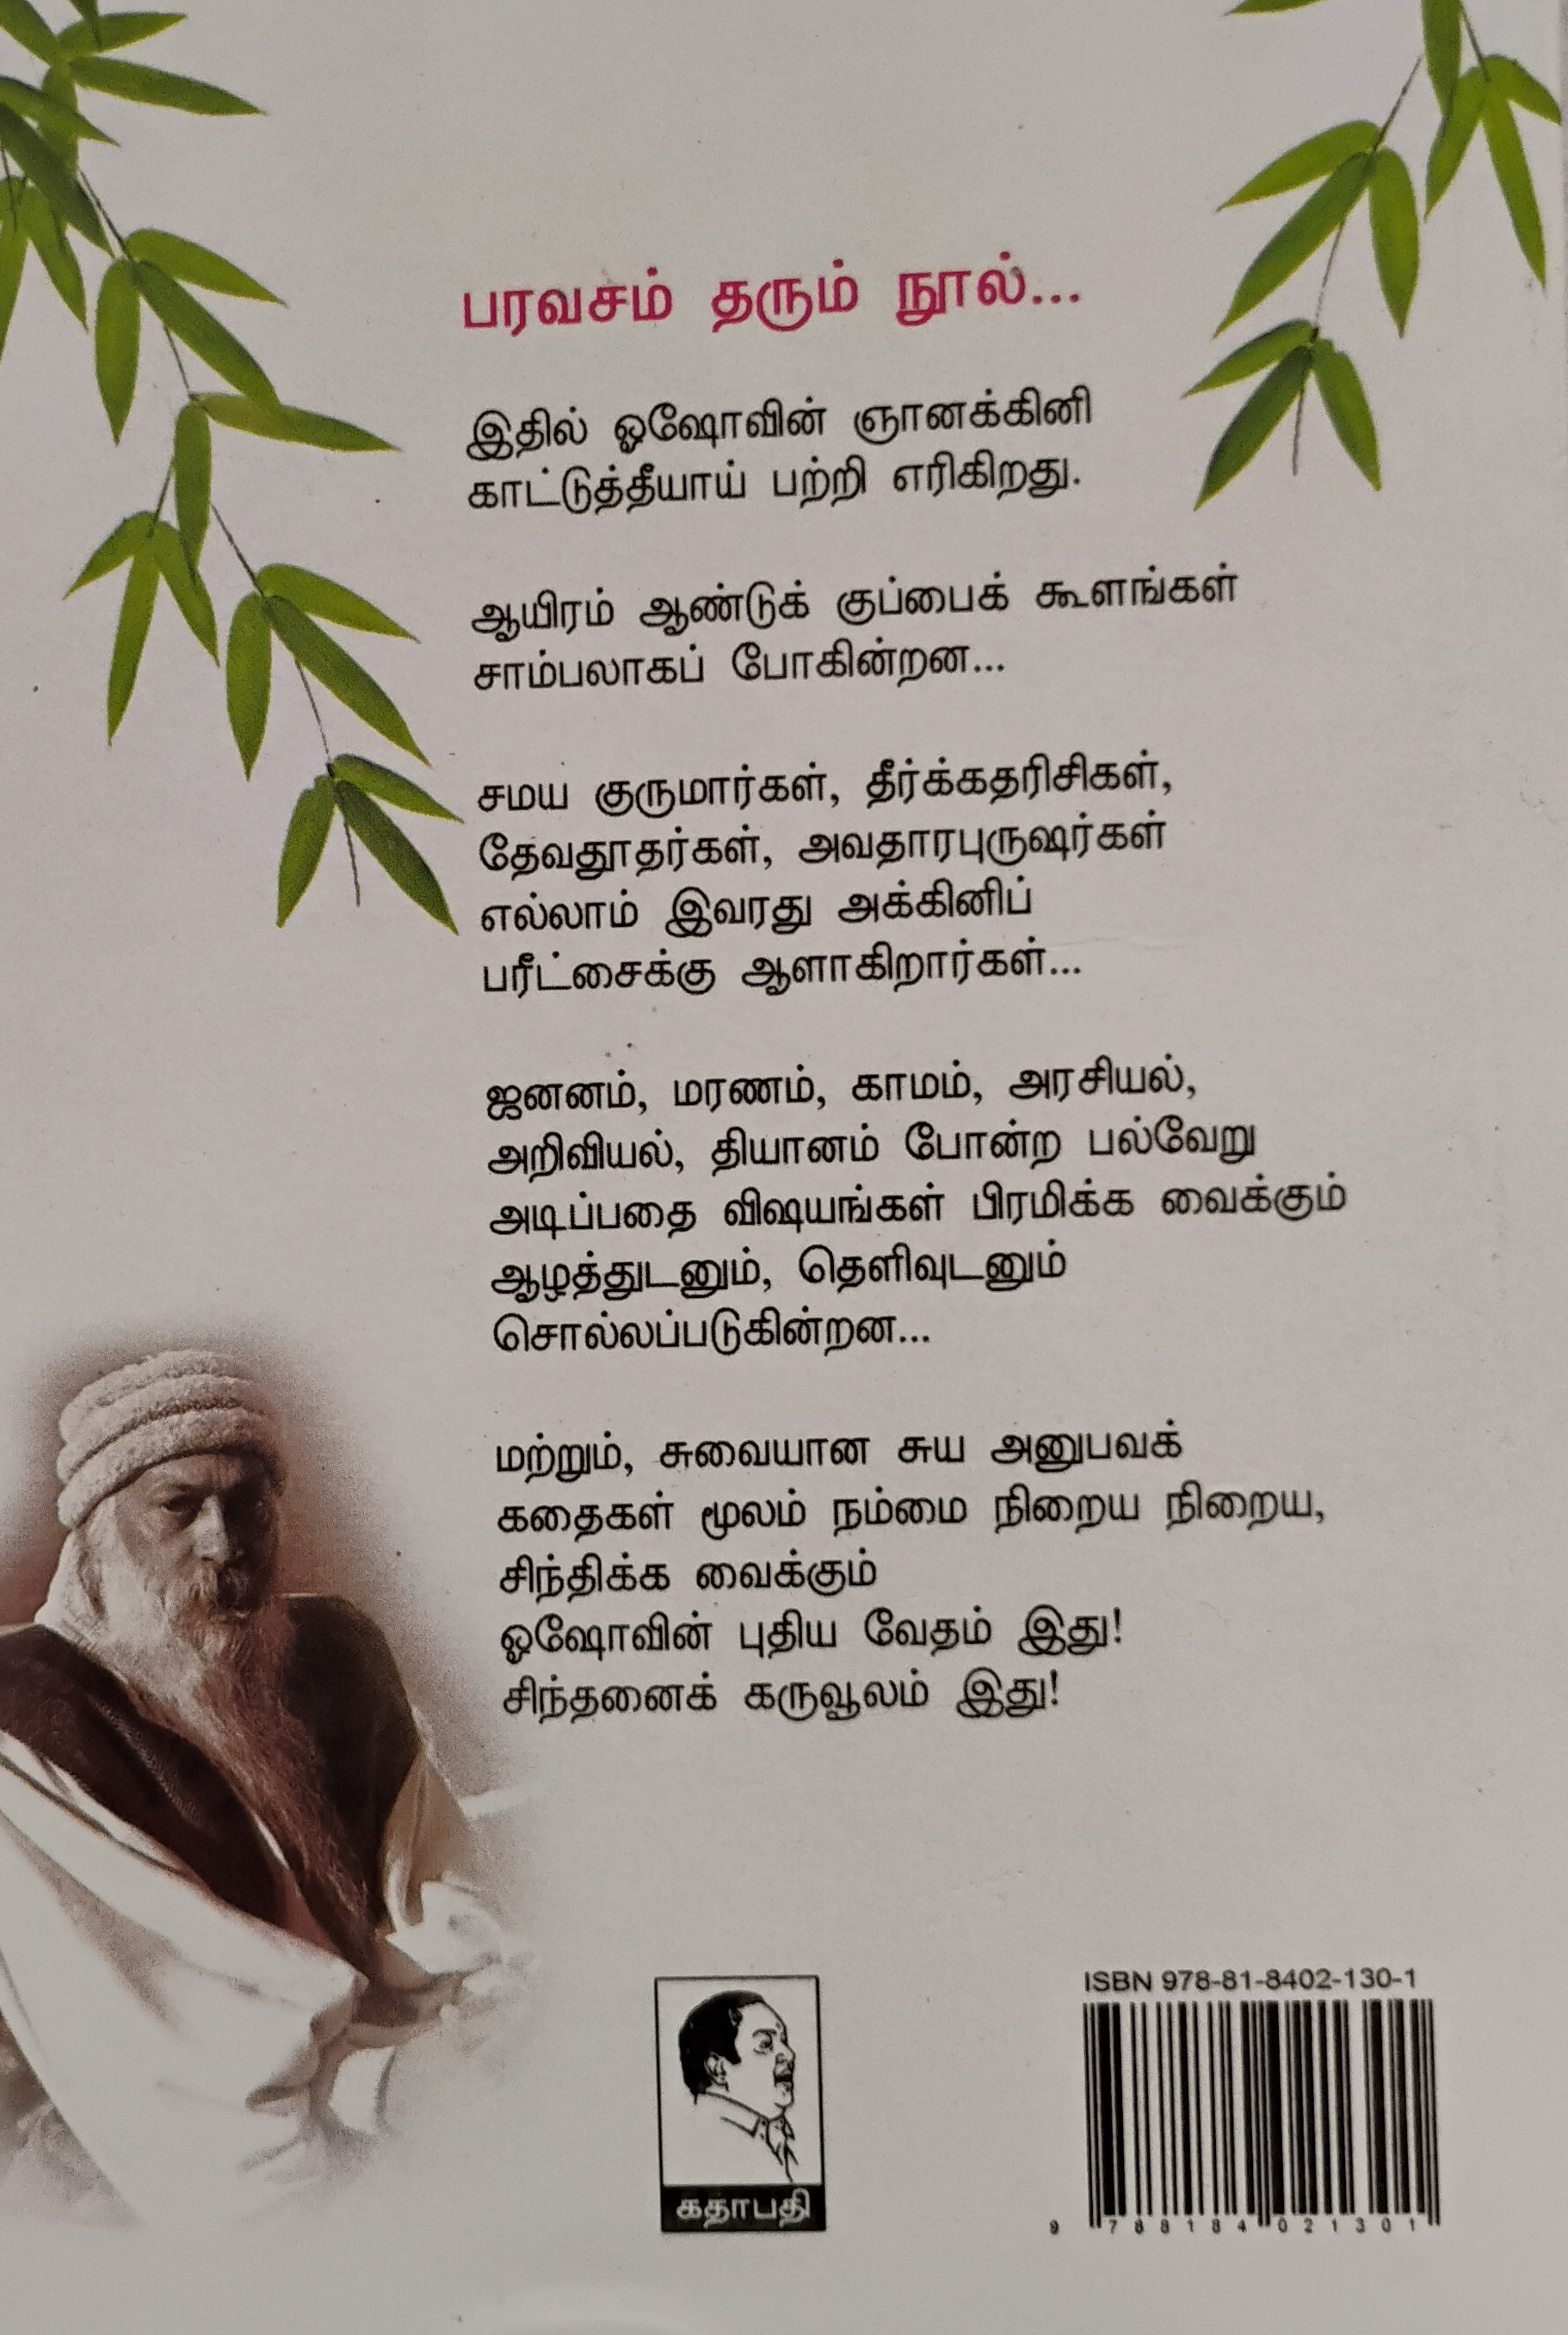 பரவசம் தரும் நூல்...
இதில் ஓஷோவின் ஞானக்கினி
காட்டுத்தீயாய் பற்றி எரிகிறது.
ஆயிரம் ஆண்டுக் குப்பைக் கூளங்கள்
சாம்பலாகப் போகின்றன...
சமய குருமார்கள், தீர்க்கதரிசிகள்,
தேவதூதர்கள், அவதாரபுருஷர்கள்
எல்லாம் இவரது அக்கினிப்
பரீட்சைக்கு ஆளாகிறார்கள்...
ஜனனம், மரணம், காமம், அரசியல்,
அறிவியல், தியானம் போன்ற பல்வேறு
அடிப்பதை விஷயங்கள் பிரமிக்க வைக்கும்
ஆழத்துடனும், தெளிவுடனும்
சொல்லப்படுகின்றன...
மற்றும், சுவையான சுய அனுபவக்
கதைகள் மூலம் நம்மை நிறைய நிறைய,
சிந்திக்க வைக்கும்
ஓஷோவின் புதிய வேதம் இது!
சிந்தனைக் கருவூலம் இது!
ISBN 978-81-8402-130-1
9 788184 021301
கதாபதி